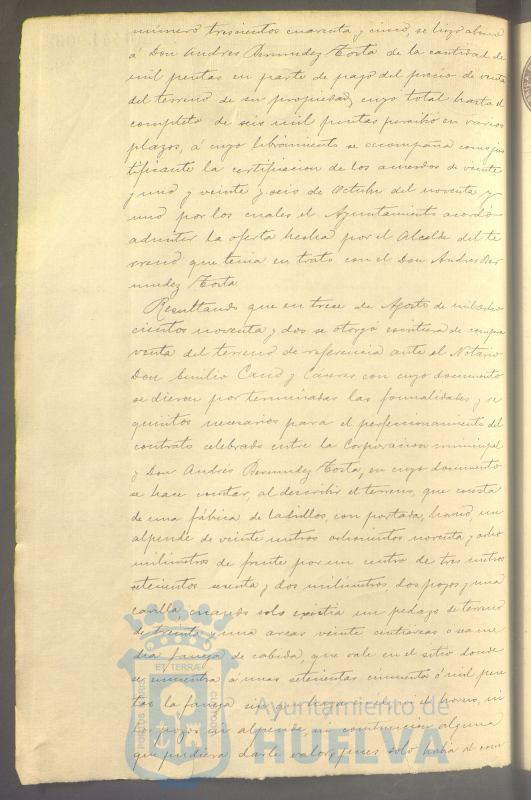 número trescientos cuarenta y cinco, se hizo abono
á Don Andres Bermudez Tosta de la cantidad de
mil pesetas en parte de pago del precio de venta
del terreno de su propiedad, cuyo total hasta el
completo de seis mil pesetas percibió en varios
plazos, á cuyo libramiento se acompaña como jus
tificante la certificacion de los acuerdos de veinte
y uno y veinte y seis de Octubre del noventa y
uno por los cuales el Ayuntamiento acordó
admitir la oferta hecha por el Alcalde del te
rreno que tenia en trato con el Don Andres Ber
mudez Tosta
Resultando que en trece de Agosto de mil ocho
cientos noventa y dos se otorgó escritura de compra
venta del terreno de referencia ante el Notario
Don Emilio Cano y Caceres con cuyo documento
se dieron por terminadas las formalidades y re
quisitos necesarios para el perfeccionamiento del
contrato celebrado entre la Corporacion municipal
y Don Andrés Bermudez Tosta, en cuyo documento
se hace constar, al describir el terreno, que consta
de una fábrica de ladrillos, con portada, horno, un
alpende de veinte metros ochocientos noventa y ocho
milimetros de frente por un centro de tres metros
setecientos y dos milimetros, dos pozos y una
casilla, cuando solo existia un pedazo de terreno
de treinta y una areas veinte centiáreas ó sea me
dia fanega de cabida, que vale en el sitio donde
se encuentra á unas setecientas cincuenta ó mil pese
tas la fanega sin que haya ni el horno, ni
los pozos ni alpende, ni construccion alguna
que pudiera darle valor, pues solo habia al
ET TERRÆ
PORTUS MARIS
CUSTODIA
Ayuntamiento de
HUELVA